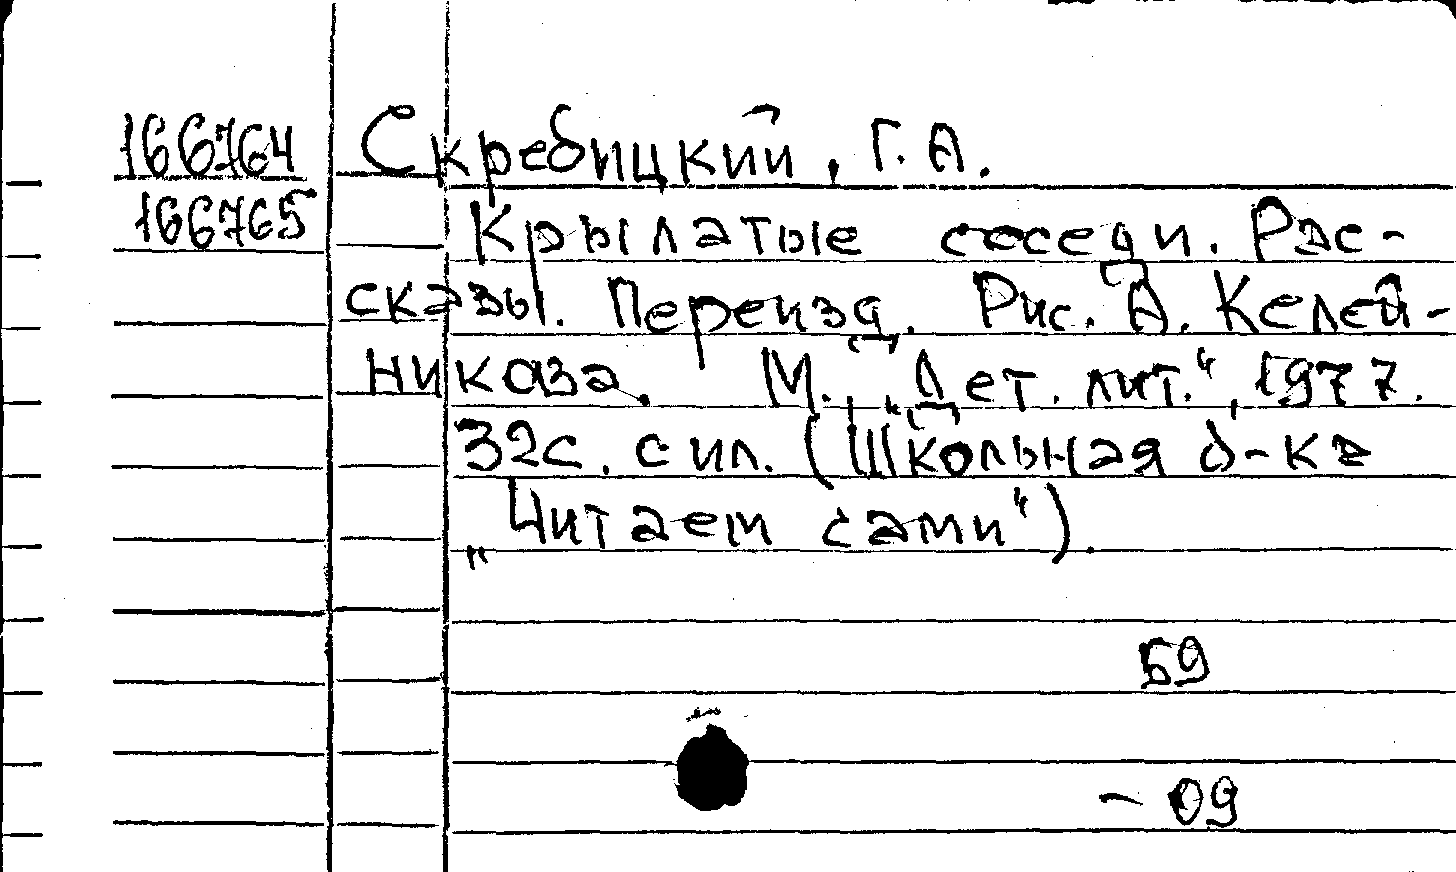 166764 Скребицкий, Г. А.
166765 Крылатые соседи. Рас-
сказы. Переизд. Рис. Д. Келей-
никова. М., „Дет. лит.“, 1977.
32с. с ил. (Школьная б-ка
„Читаем сами“).
59
- 09